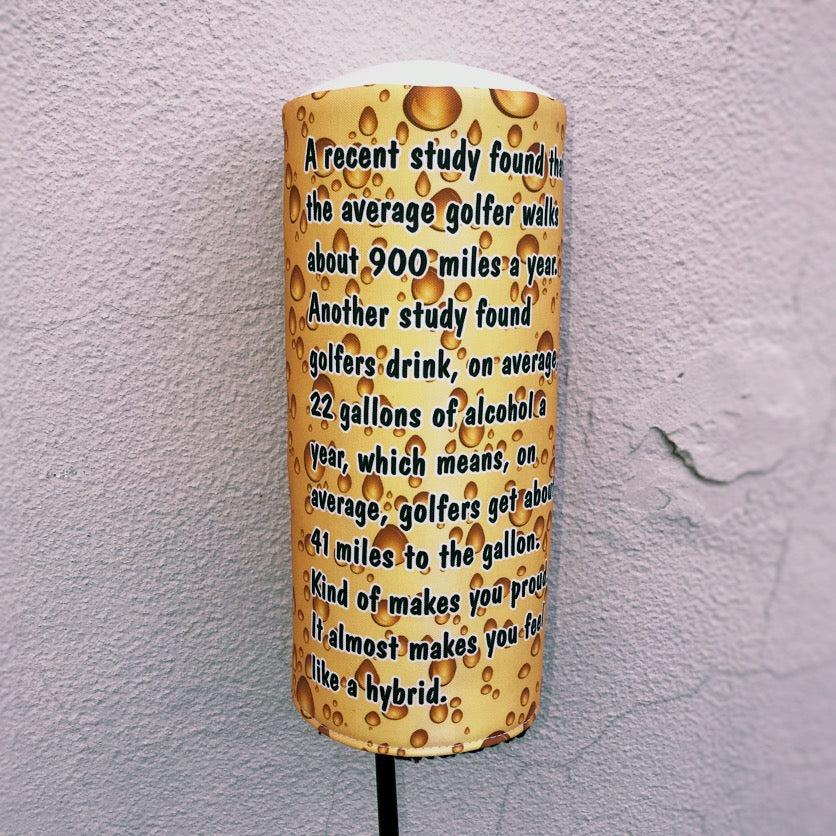 A recent study found tha
the average golfer walks
about 900 miles a year.
Another study found
golfers drink, on average
22 gallons of alcohol a
year, which means, on
average, golfers get about
41 miles to the gallon.
Kind of makes you proud
It almost makes you feel
like a hybrid.